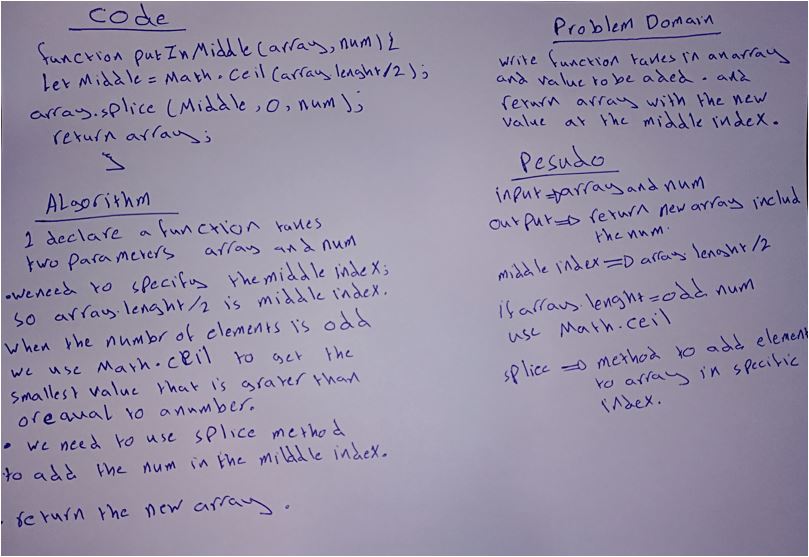 Code
function putInMiddle(array, num){
Let Middle = Math.ceil(array lenght/2);
array.splice (Middle, 0, num);
return array;
}
ALgorithm
1 declare a function takes
two parameters array and num
• we need to specify the middle index;
so array.lenght/2 is middle index.
when the numbr of elements is odd
we use Math.ceil to get the
smallest value that is grater than
or equal to anumber.
• we need to use splice method
to add the num in the middle index.
• return the new array.
Problem Domain
write function takes in an array
and value to be aded. and
return array with the new
value at the middle index.
Pesudo
input => array and num
output => return new array includ
the num.
middle index => array lenght/2
if array.lenght = odd num
use Math.ceil
splice => method to add element
to array in specific
index.